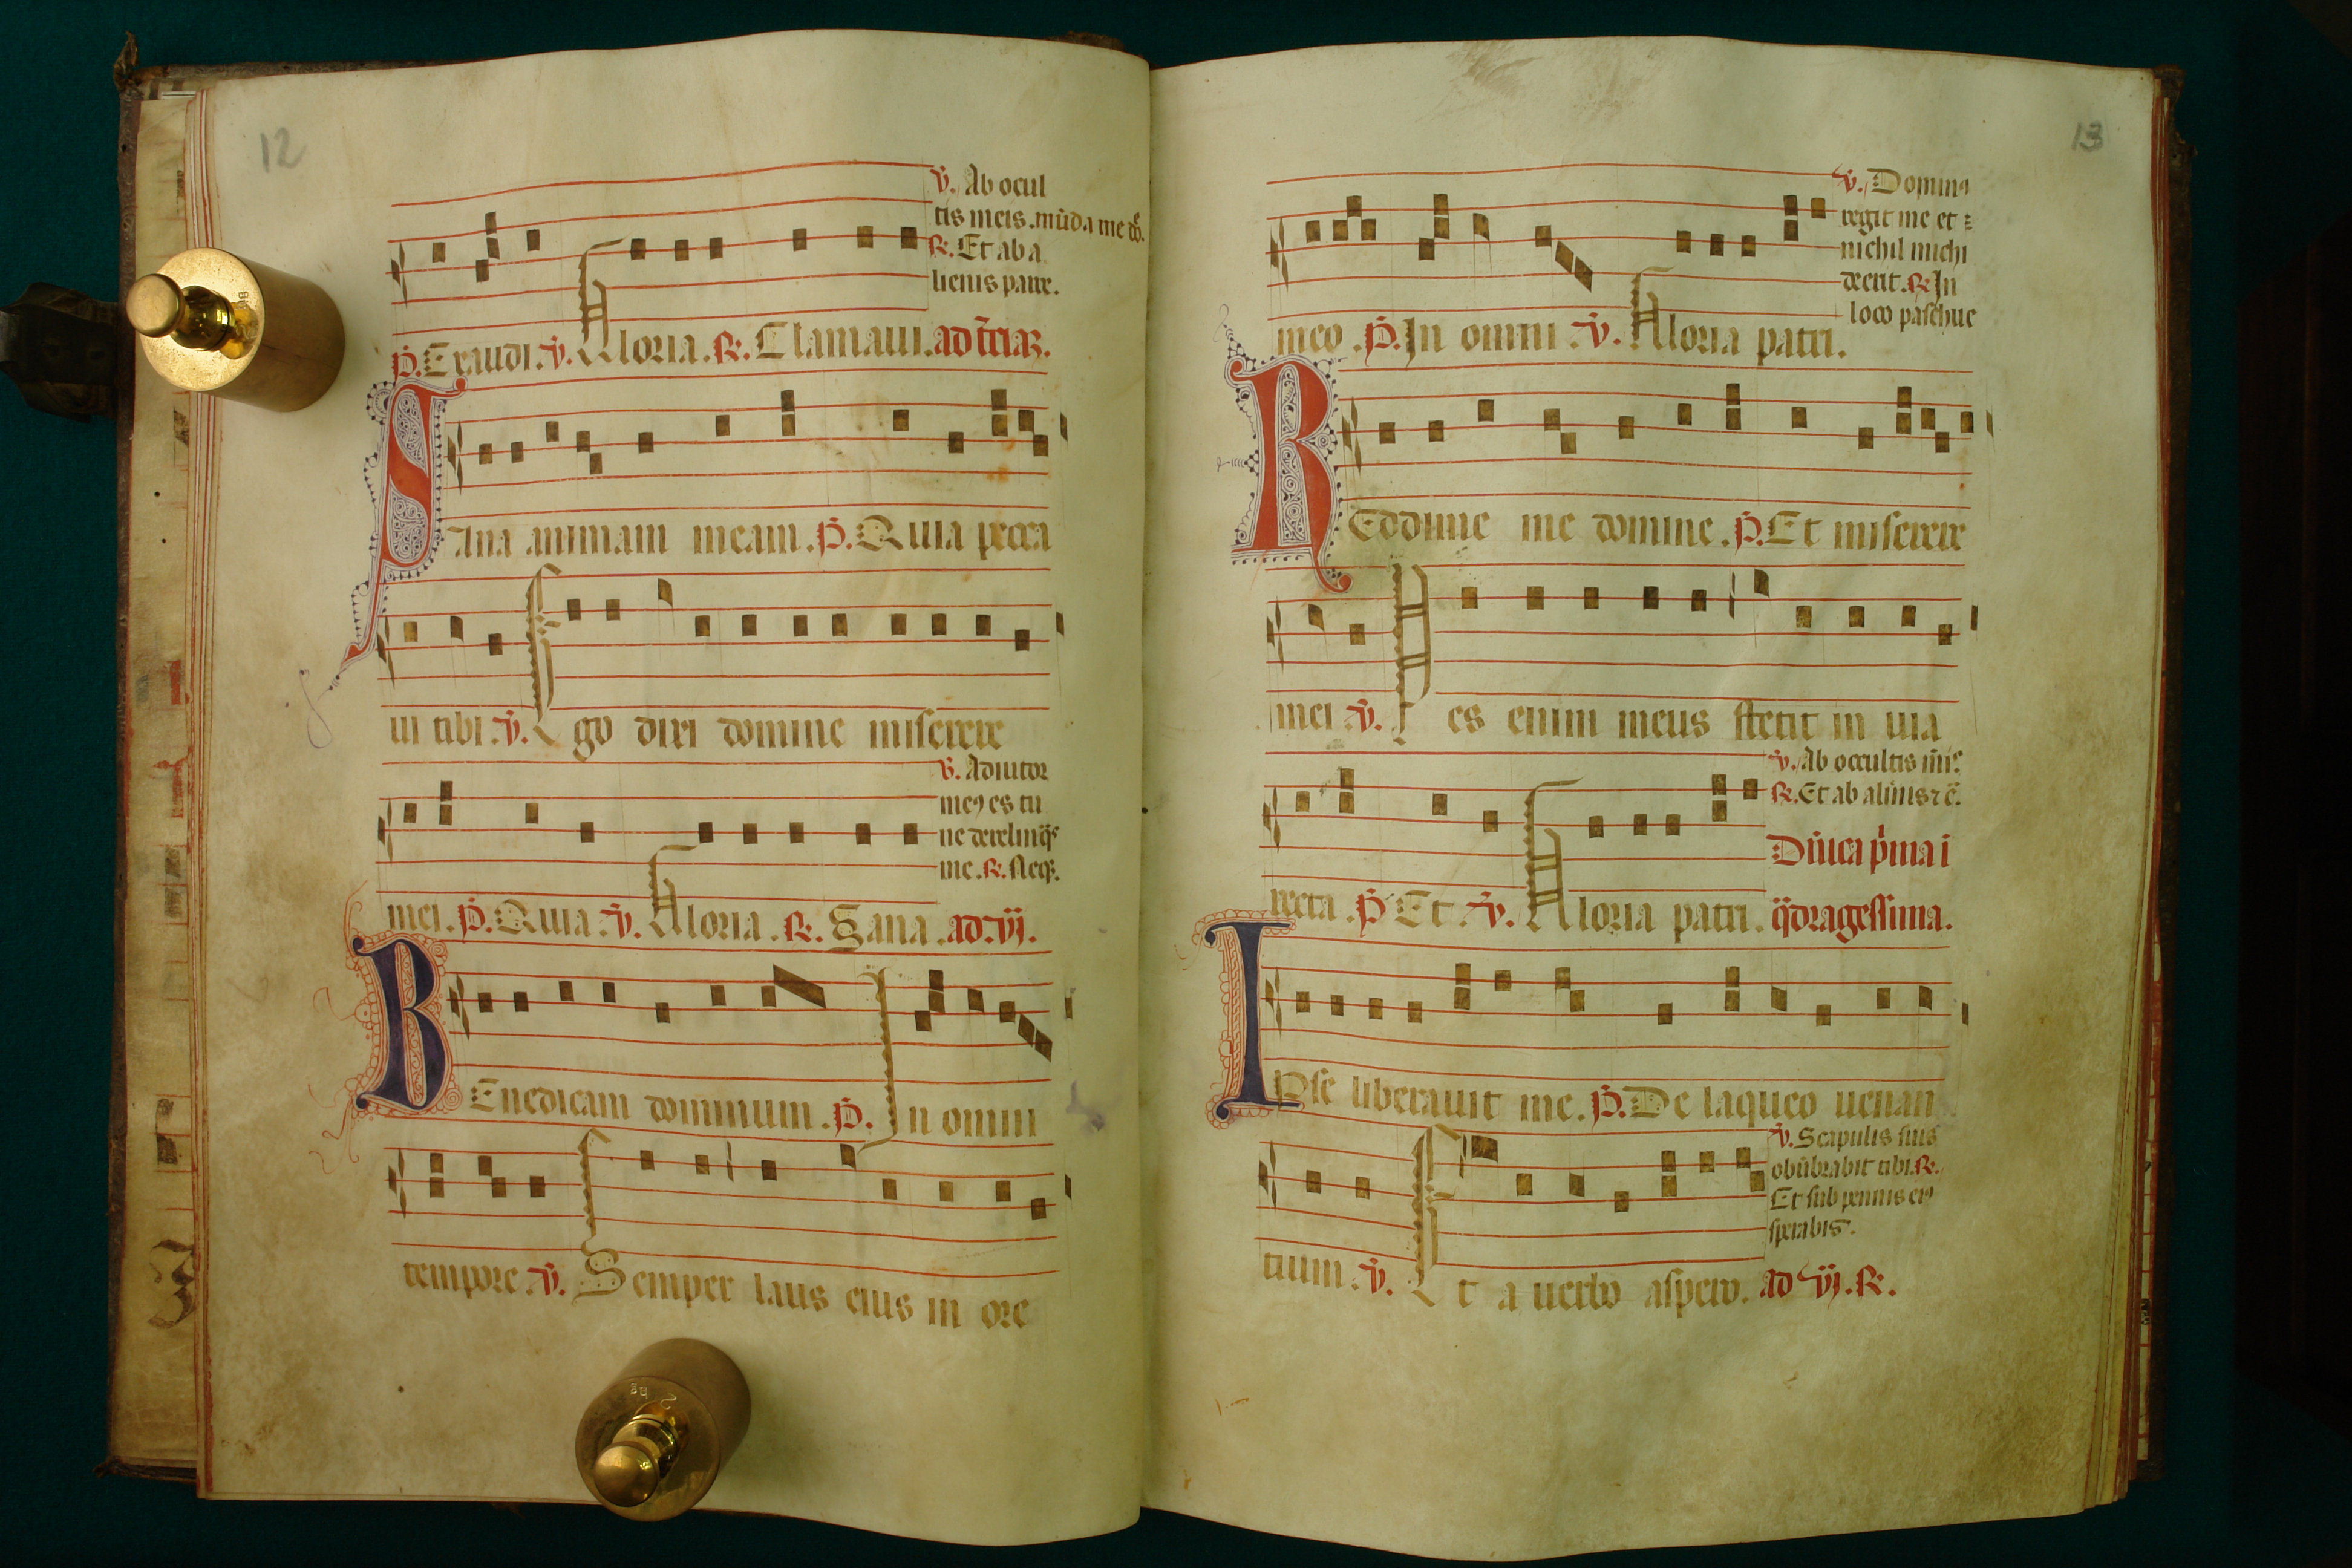 12
v̄. Ab ocul
tis meis. mūda me dn̄e.
R. Et ab a
lienis parce.
P. Exaudi. v̄. Gloria. R. Clamaui. ad
Sana animam meam. P. Quia pecca
ui tibi. v̄. Ego dixi domine miserere
v̄. Adiutor
me9 es tu
ne derelinq̄s
me. R. Neq3.
mei. P. Quia v̄. Gloria. R. Sana. ad vj.
BEnedicam dominum. P. In omni
tempore v̄. Semper laus eius in ore
13
v̄. Domin9
regit me et
nichil michi
deerit. R. In
loco paschue
meo. P. In omni v̄. Gloria patri.
REddime me domine. P. Et miserere
mei v̄. Pes enim meus stetit in uia
v̄. Ab occultis m̄is.
R. Et ab alienis
recta. P. Et v̄. Gloria patri.
Dn̄ica p̄ma i
q̄dragessima.
IPse liberauit me. P. De laqueo uenan
tium. v̄. Et a uerbo aspero. ad vj. R.
v̄. Scapulis suis
obūbrabit tibi. R.
Et sub pennis ei9
sperabis.